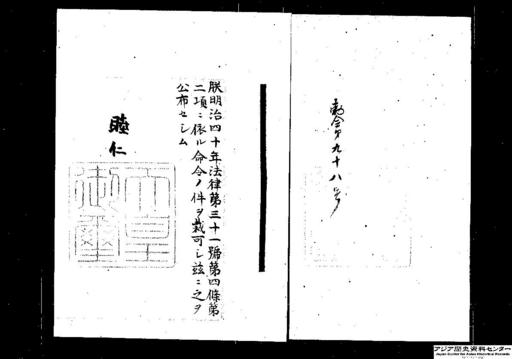 勅令第九十八号
朕明治四十年法律第三十一號第四條第
二項ニ依ル命令ノ件ヲ裁可シ茲ニ之ヲ
公布セシム
睦仁
天皇
御璽
アジア歴史資料センター
Japan Center for Asian Historical Records